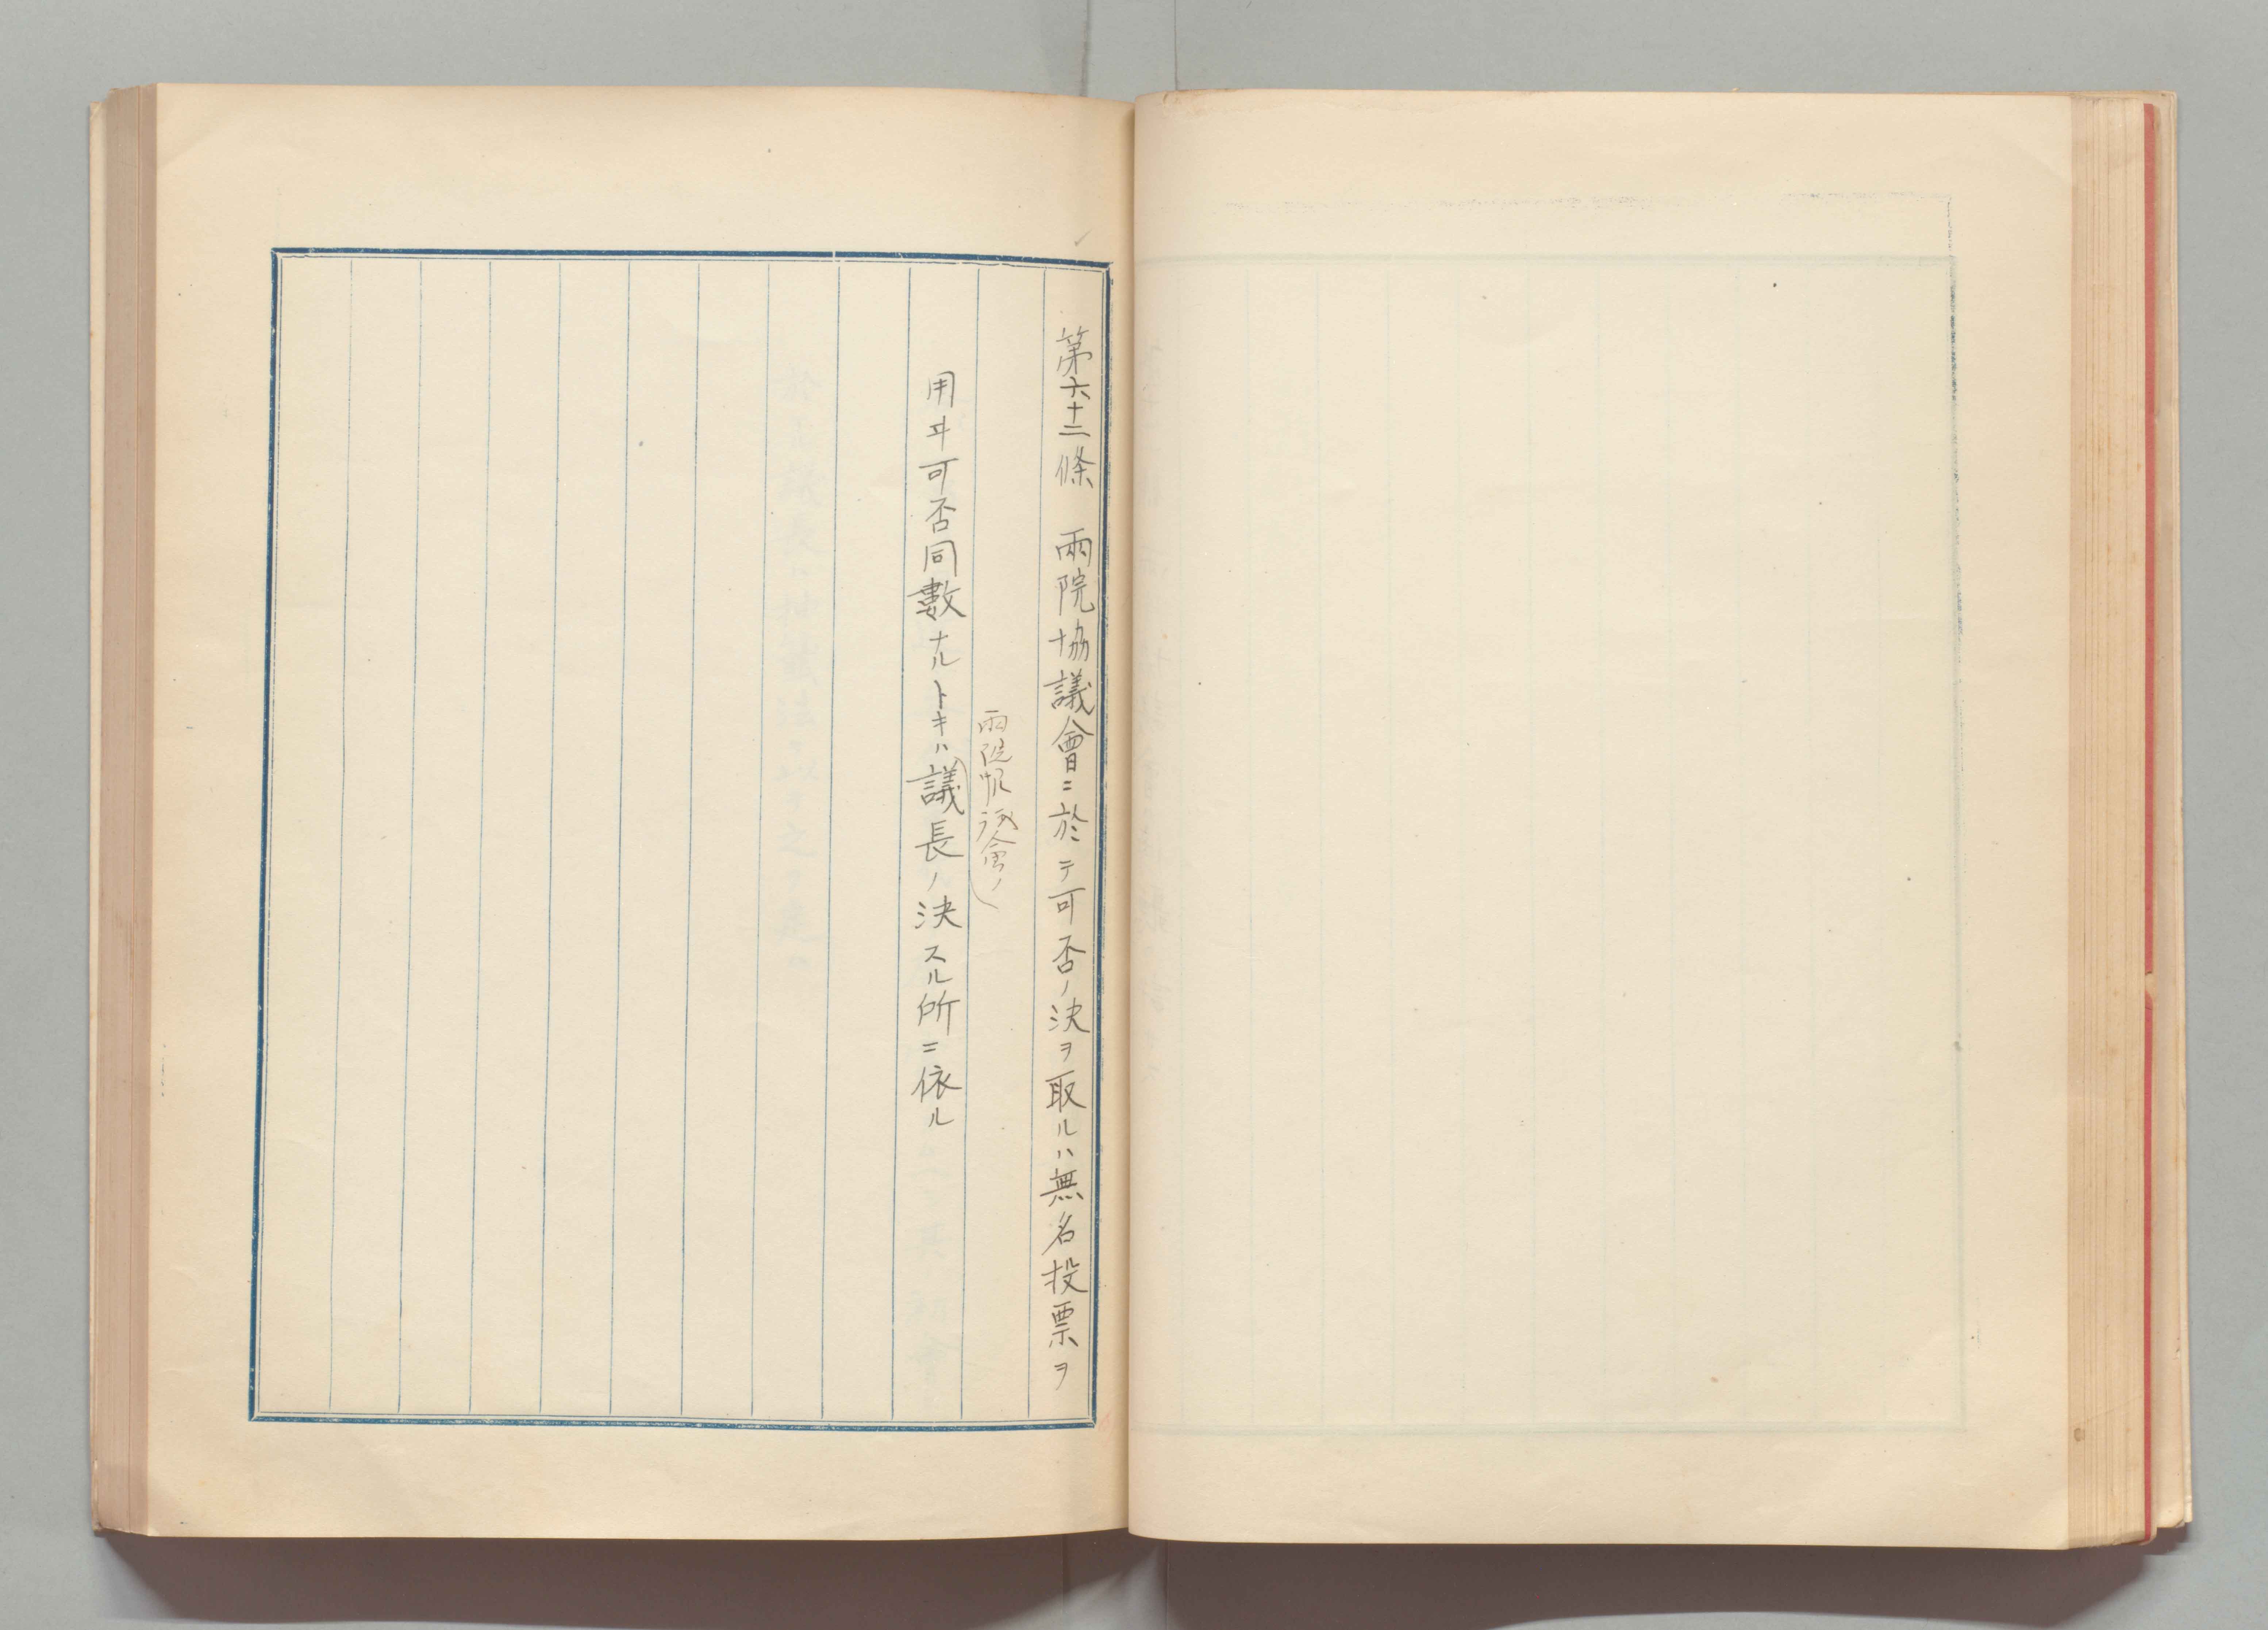 第六十二條　兩院協議會ニ於テ可否ノ決ヲ取ルハ無名投票ヲ
兩院協議會ノ
用ヰ可否同數ナルトキハ議長ノ決スル所ニ依ル